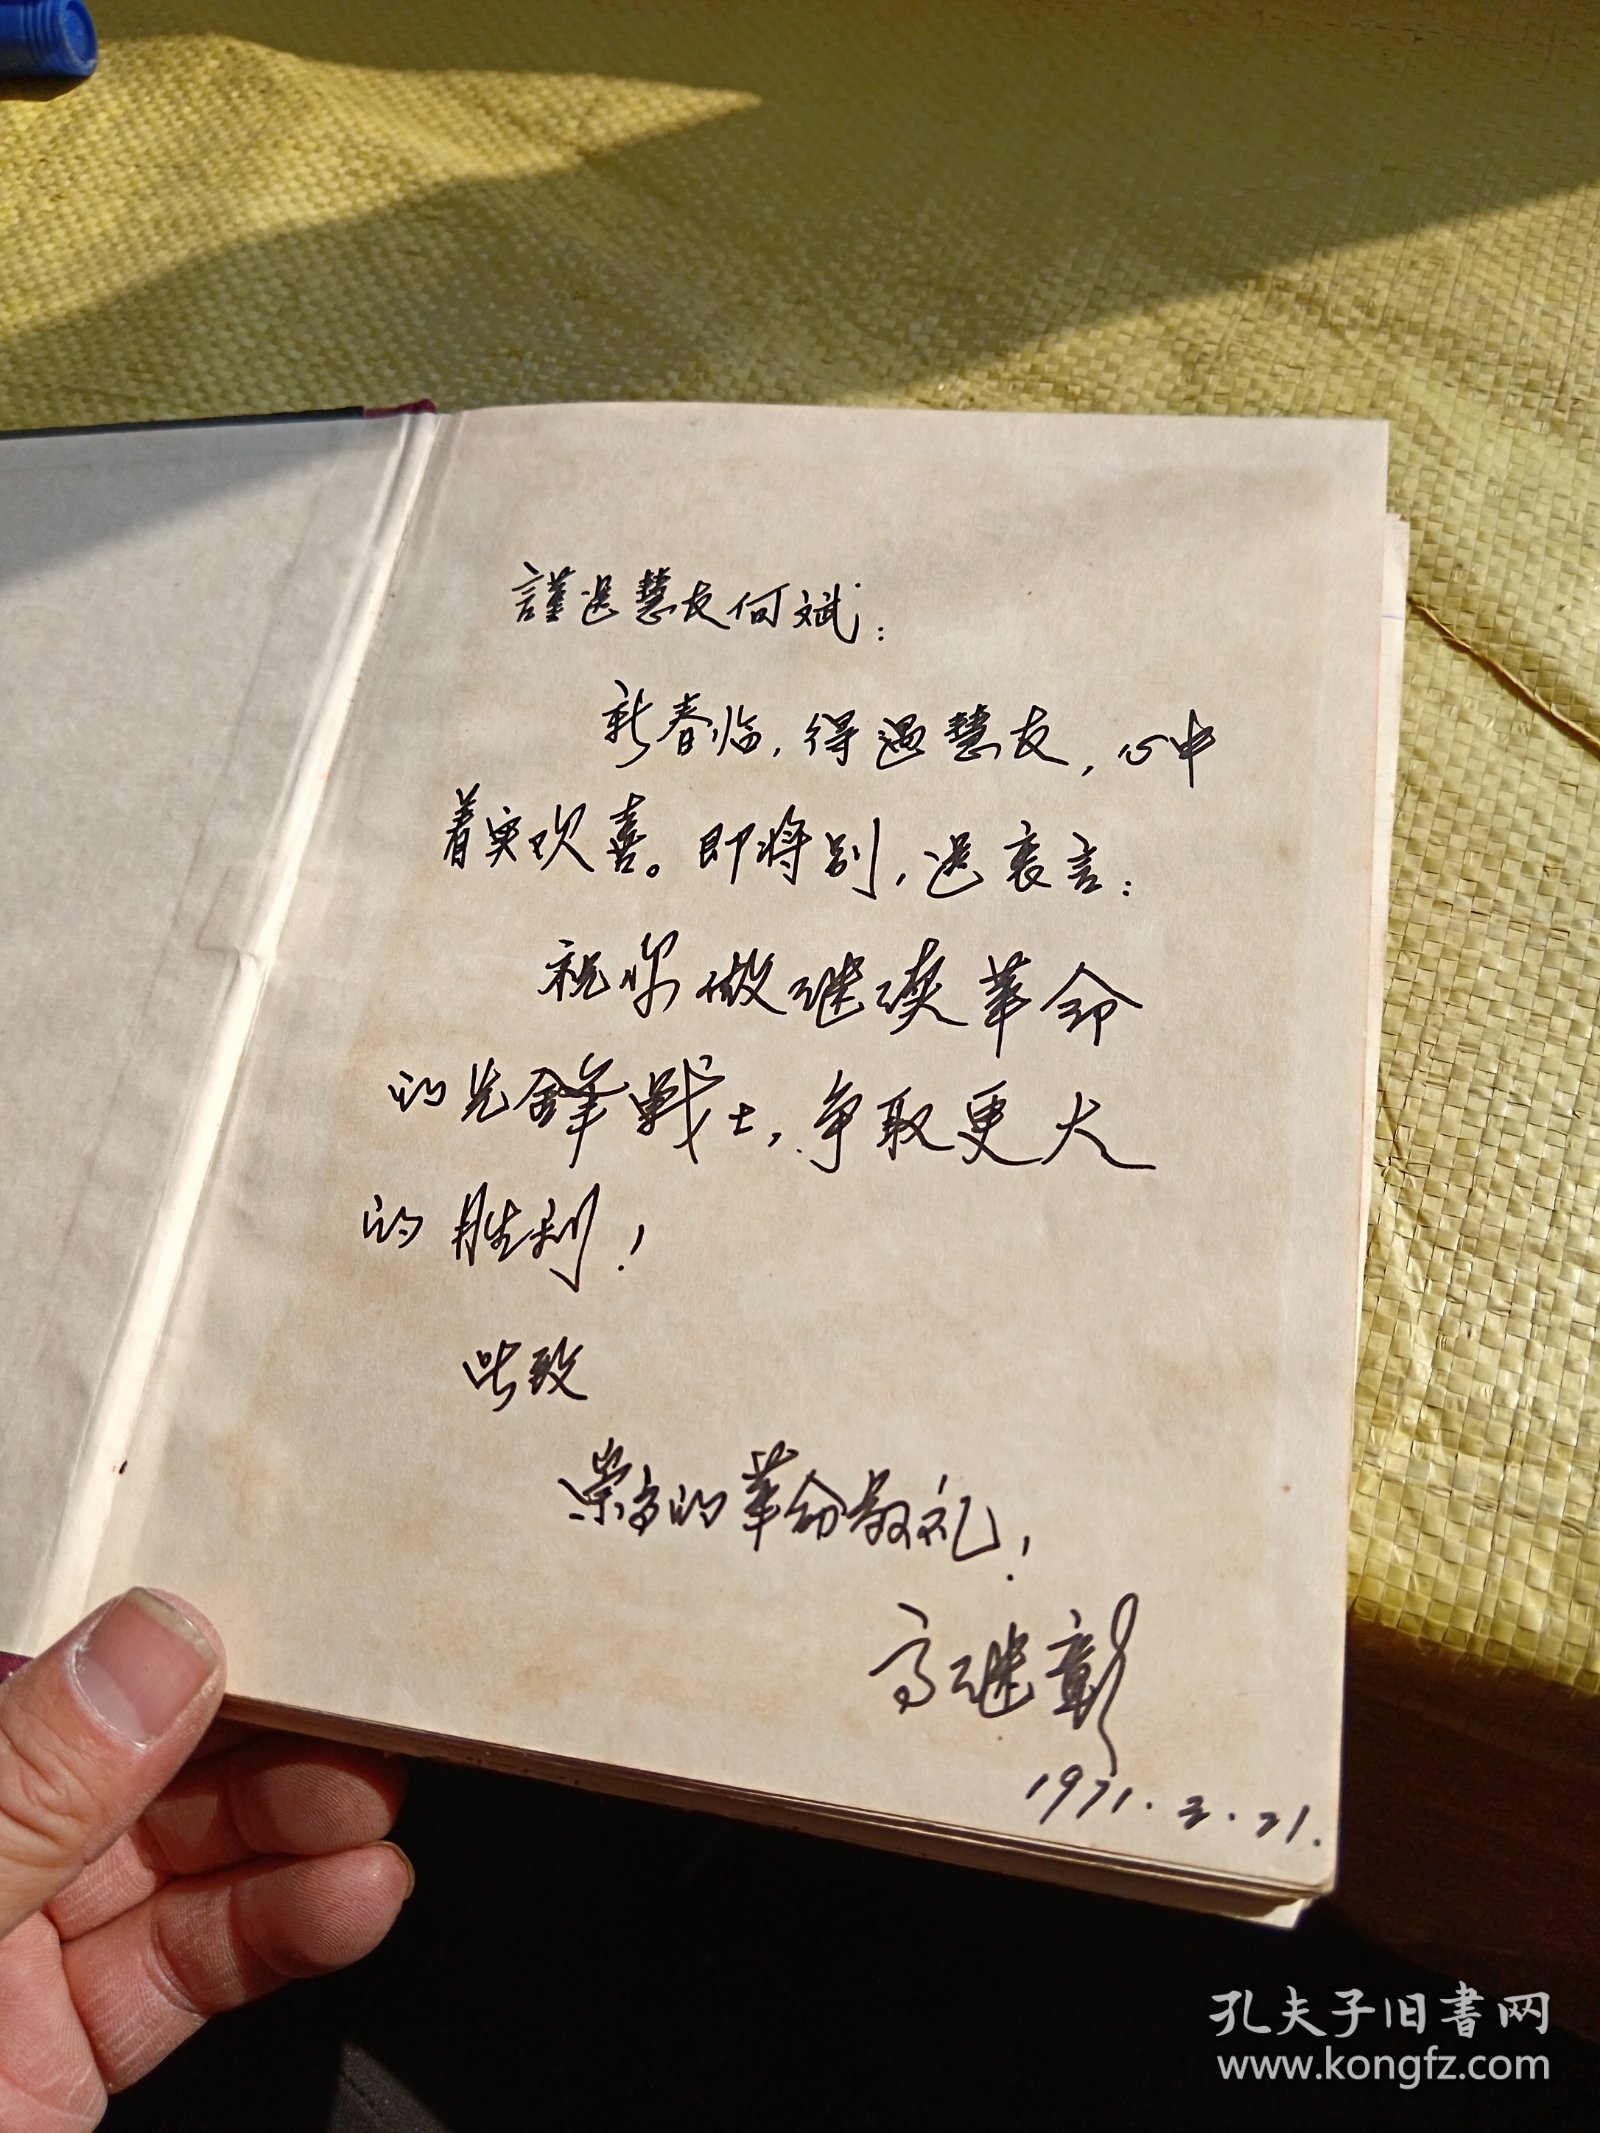 謹送慧友何斌：
新春临，得遇慧友，心中
着实欢喜。即将别，送衷言：
祝你做继续革命
的先鋒戰士，争取更大
的胜利！
此致
崇高的革命敬礼！
高继彰
1971.2.21.
孔夫子旧书网
www.kongfz.com